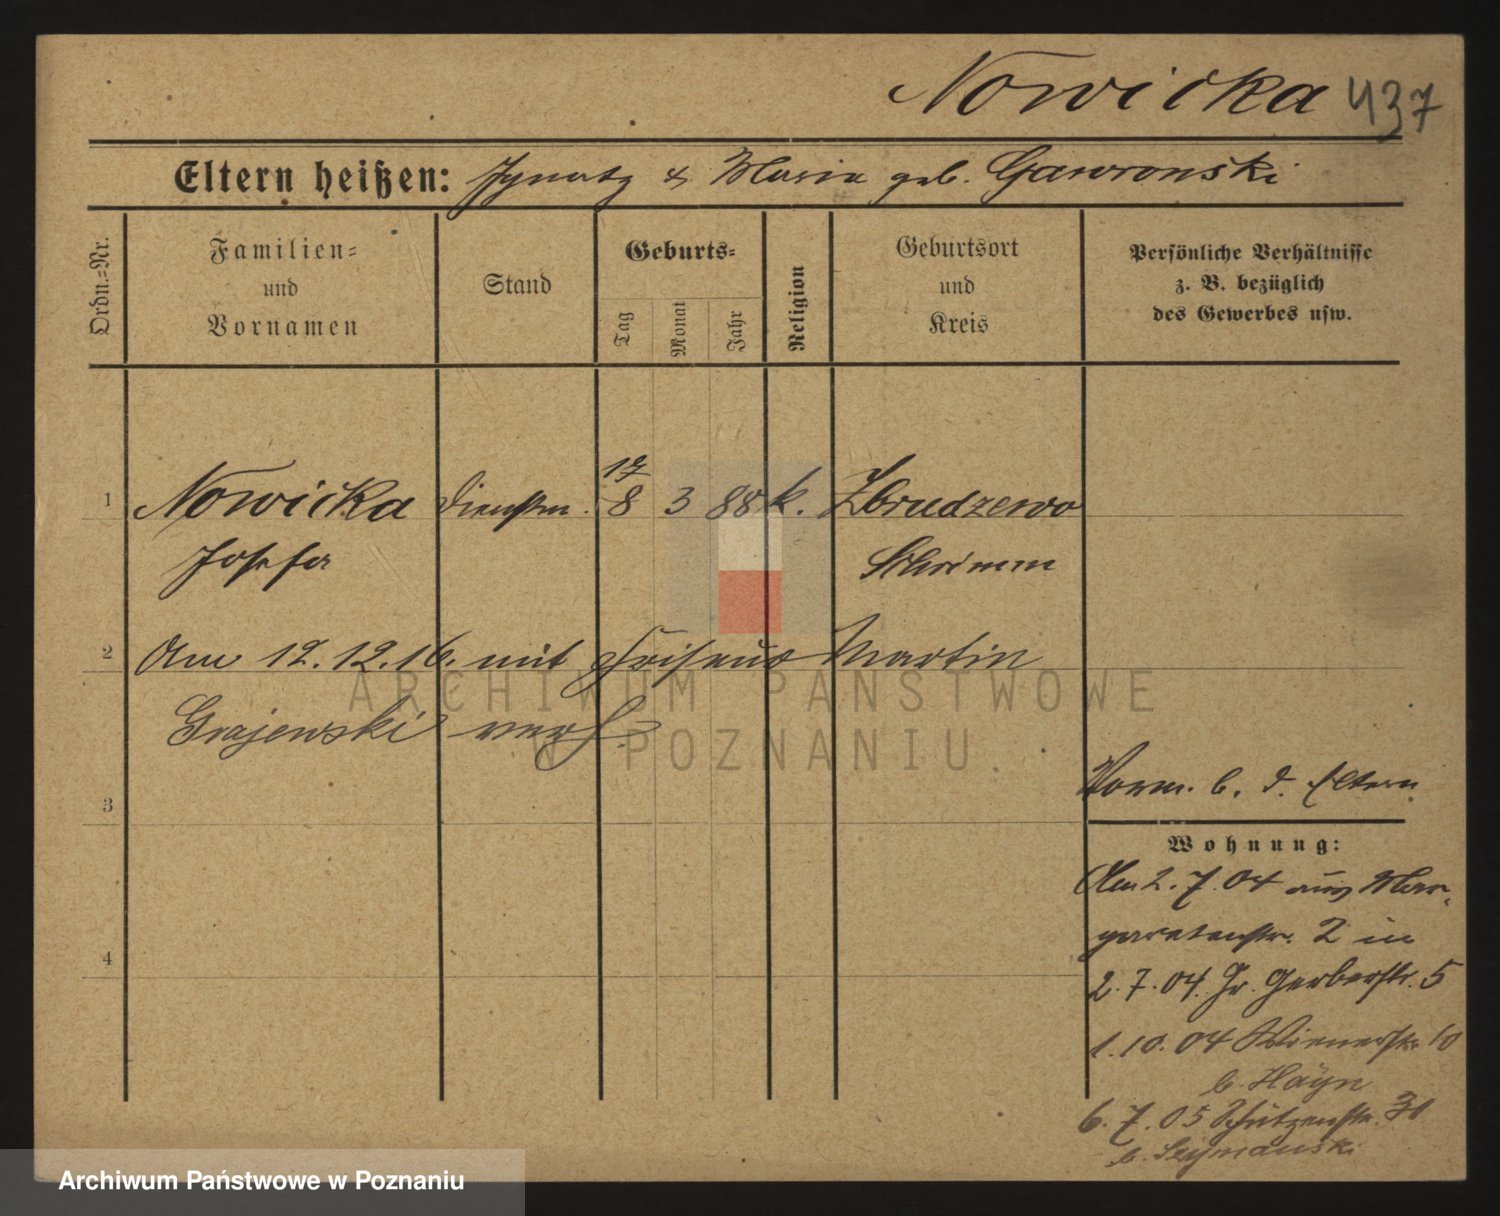 Nowicka 437
Eltern heißen: Ignatz & Maria geb. Gawronski
Ordn.=Nr.
Familien=
und
Vornamen
Stand
Geburts=
Tag
Monat
Jahr
Religion
Geburtsort
und
Kreis
Persönliche Verhältnisse
z. B. bezüglich
des Gewerbes usw.
17
1 Nowicka Dienstm. 8 3 88 k. Zbrudzewo
Josefa Schrimm
2 Am 12.12.16. mit Friseur Martin
Grajewski verh.
ARCHIWUM PAŃSTWOWE
W POZNANIU
3
Vorm. b. d. Eltern
Wohnung:
Am 2.7.04 aus Mar-
garetenstr. 2 in
4
2.7.04. Gr. Gerberstr. 5
1.10.04 Wienerstr. 10
b. Hayn
6.7.05 Schützenstr. 31
b. Seymanski
Archiwum Państwowe w Poznaniu